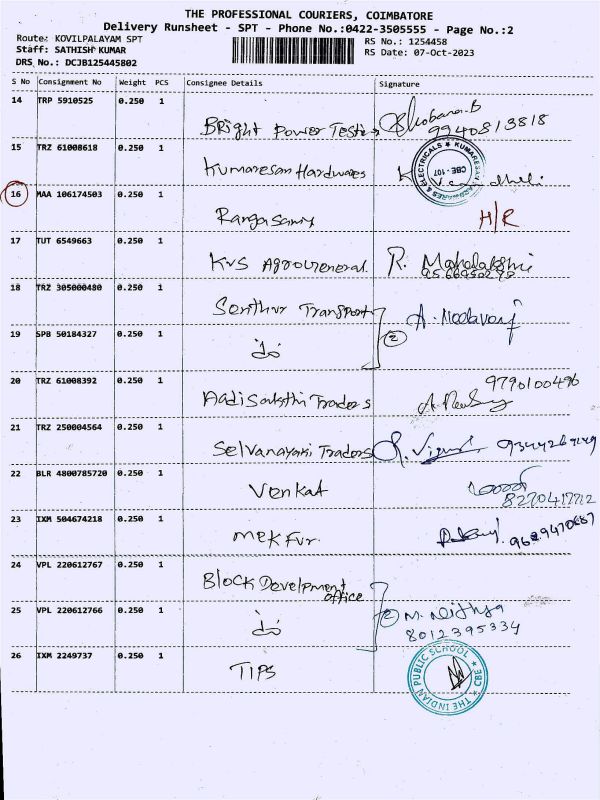 THE PROFESSIONAL COURIERS, COIMBATORE
Delivery Runsheet - SPT - Phone No.:0422-3505555 - Page No.:2
Route: KOVILPALAYAM SPT
RS No.: 1254458
Staff: SATHISH KUMAR
RS Date: 07-Oct-2023
DRS No.: DCJB125445802
S No Consignment No Weight PCS Consignee Details Signature
14 TRP 5910525 0.250 1 Bright Power Tester Shobana.B
9940813818
15 TRZ 61008618 0.250 1 Kumaresan Hardwares
KUMARESAN HARDWARES & ELECTRICALS CBE - 107
16 MAA 106174503 0.250 1 Rangasamy H/R
17 TUT 6549663 0.250 1 KVS Agro General R. Mahalakshmi
18 TRZ 305000480 0.250 1 Senthur Transport
19 SPB 50184327 0.250 1 do 2
20 TRZ 61008392 0.250 1 Aadi Sakthi Traders 9790100496
21 TRZ 250004564 0.250 1 Selvanayaki Traders
22 BLR 4800785720 0.250 1 Venkat
8270417712
23 IXM 504674218 0.250 1 MEK Fur.
24 VPL 220612767 0.250 1 Block Develpment office
25 VPL 220612766 0.250 1 do 2 M. Nithya
8012395334
26 IXM 2249737 0.250 1 TIPS
THE INDIAN PUBLIC SCHOOL CBE